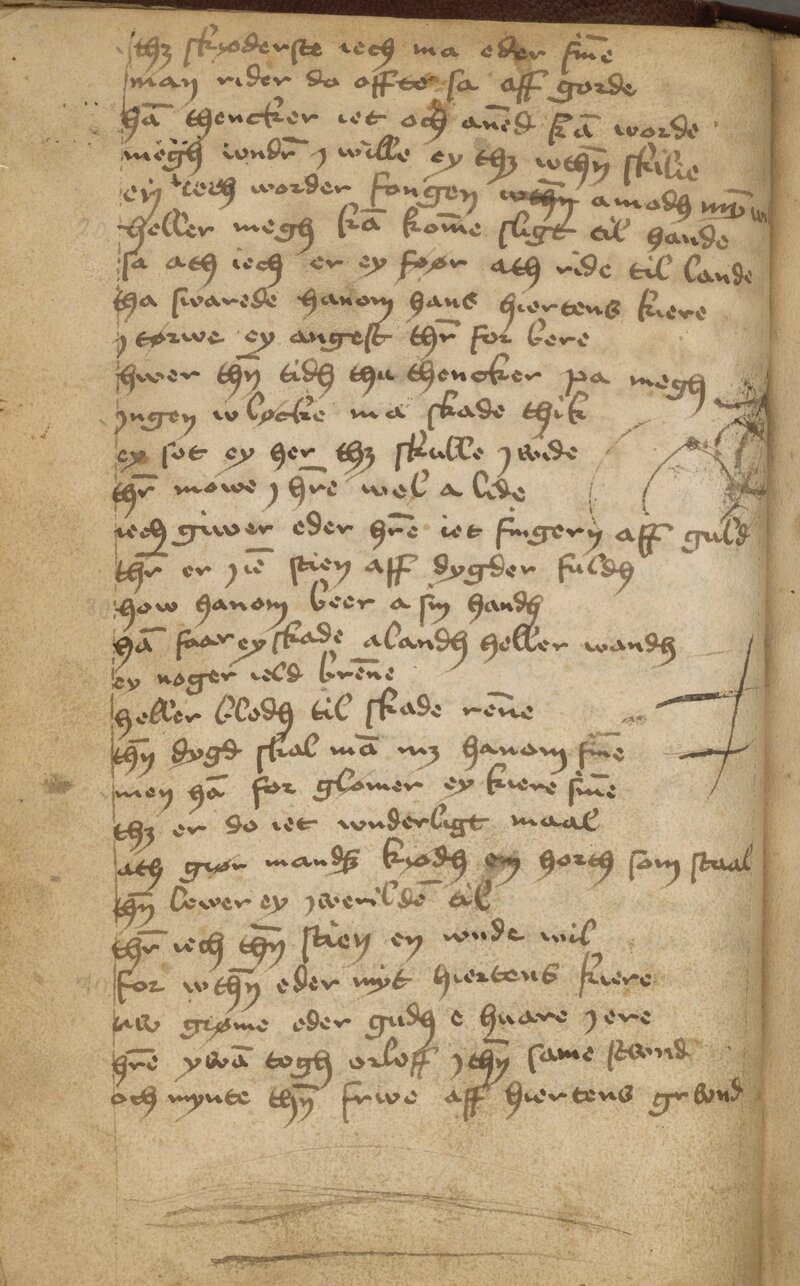 thꝫ skyderste iech ma eder fin̄e
man rider do offte sa aff gorde
hā thencker iet och an̄ed kā worde
megh wndr̄ j wille ey thꝫ wthn̄ skilie
en iech worder fongen wthn̄ amodh
heller megh kā kom̄e sligt til hande
sa ath iech er ey føør ath ride til lande
tha swarede hanom hans hiertens kiere
j tørwe ey angest thr̄ for bere
hwer thn̄ tidh thu thencker pa megh
jngen wlocke ma skade thik
ey sot ey her thꝫ skulle j wide
thr̄ mowe j hr̄e wel a lide
iech giwer eder hr̄e iet fingern aff guld
thr̄ er j iē stien aff dygder fuldh
how hanom beer a sin handh
hā faar ey skade alandh heller wandh
ey noger ield bren̄e
heller blodh til skade ren̄e
thn̄ dygd skal mā mꝫ hanom fin̄e
men hā for glomer ey kiere sin̄e
thꝫ er do iet wnderligt maal
ath giør mandꝫ kiødh em horth som staal
thn̄ lewer ey j werildē til
thr̄ iech thn̄ stien en wnde wil
for wthn̄ eder myt hiertens kiere
nw grøme eder gudh e huare j ere
hr̄e ywā togh orloff j thn̄ same stwnd
och mynte thn̄ frwe aff hiertens grwnd